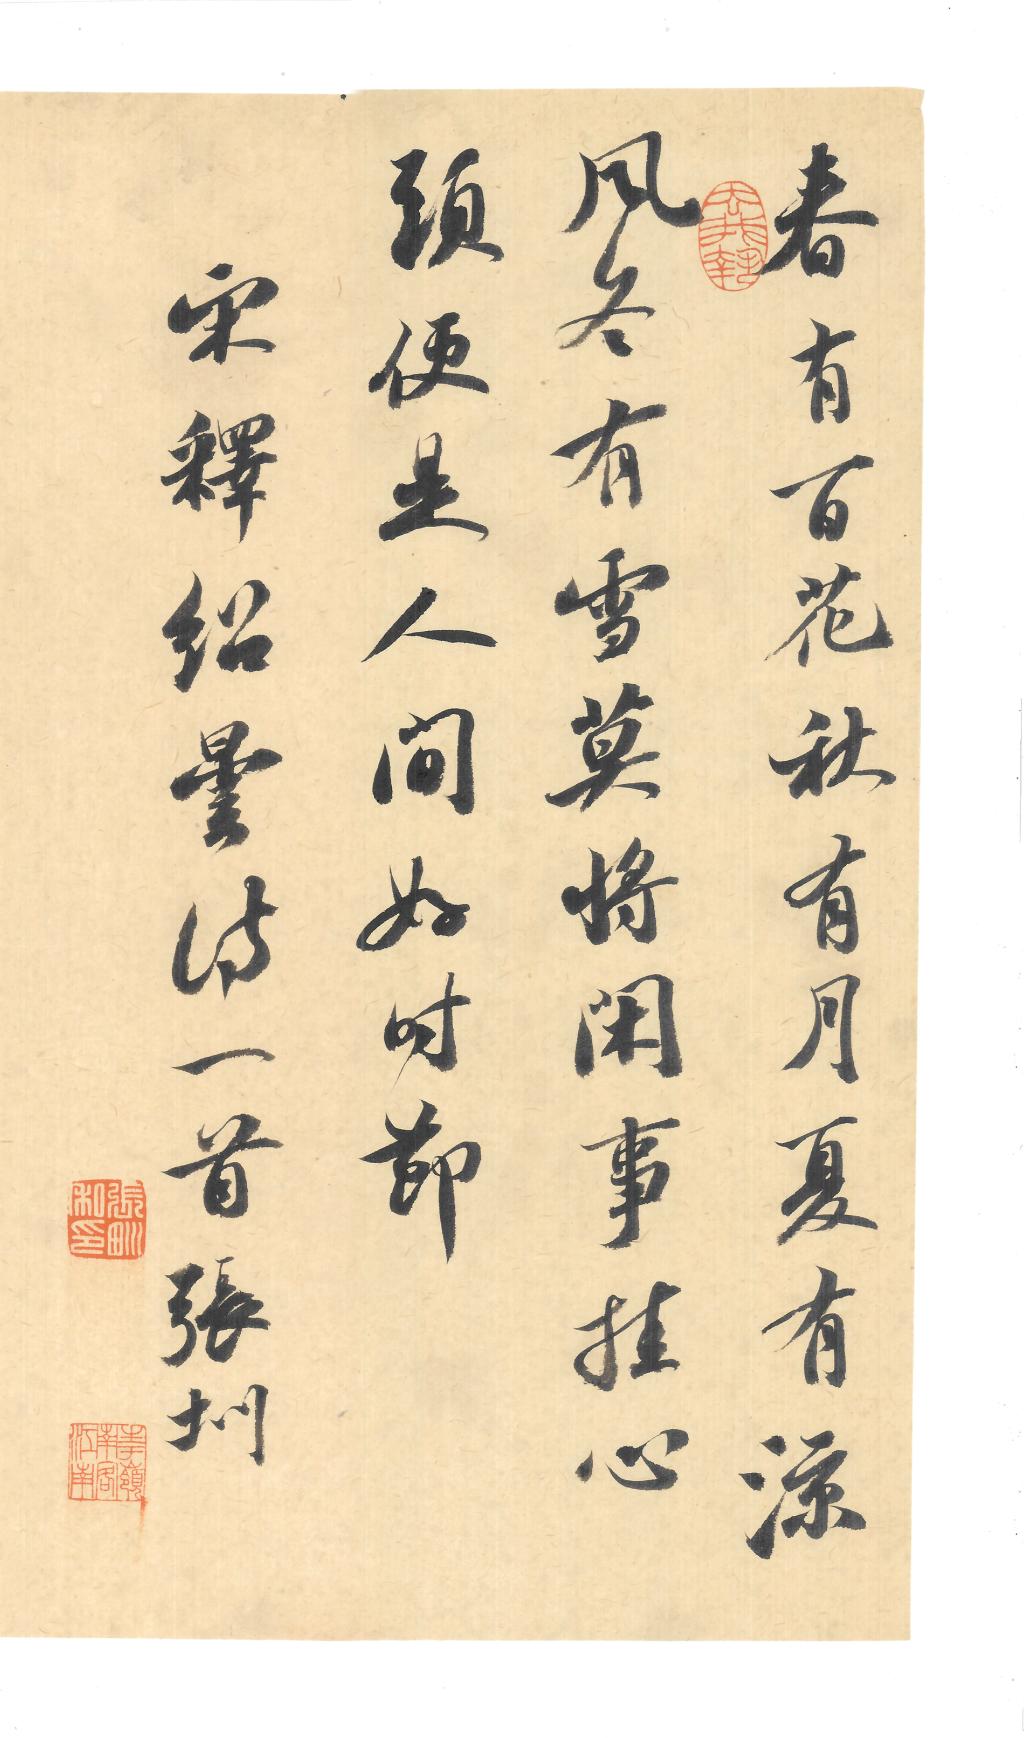 春有百花秋有月夏有涼
風冬有雪莫將閑事挂心
頭便是人間好时節
宋釋紹曇詩一首張圳